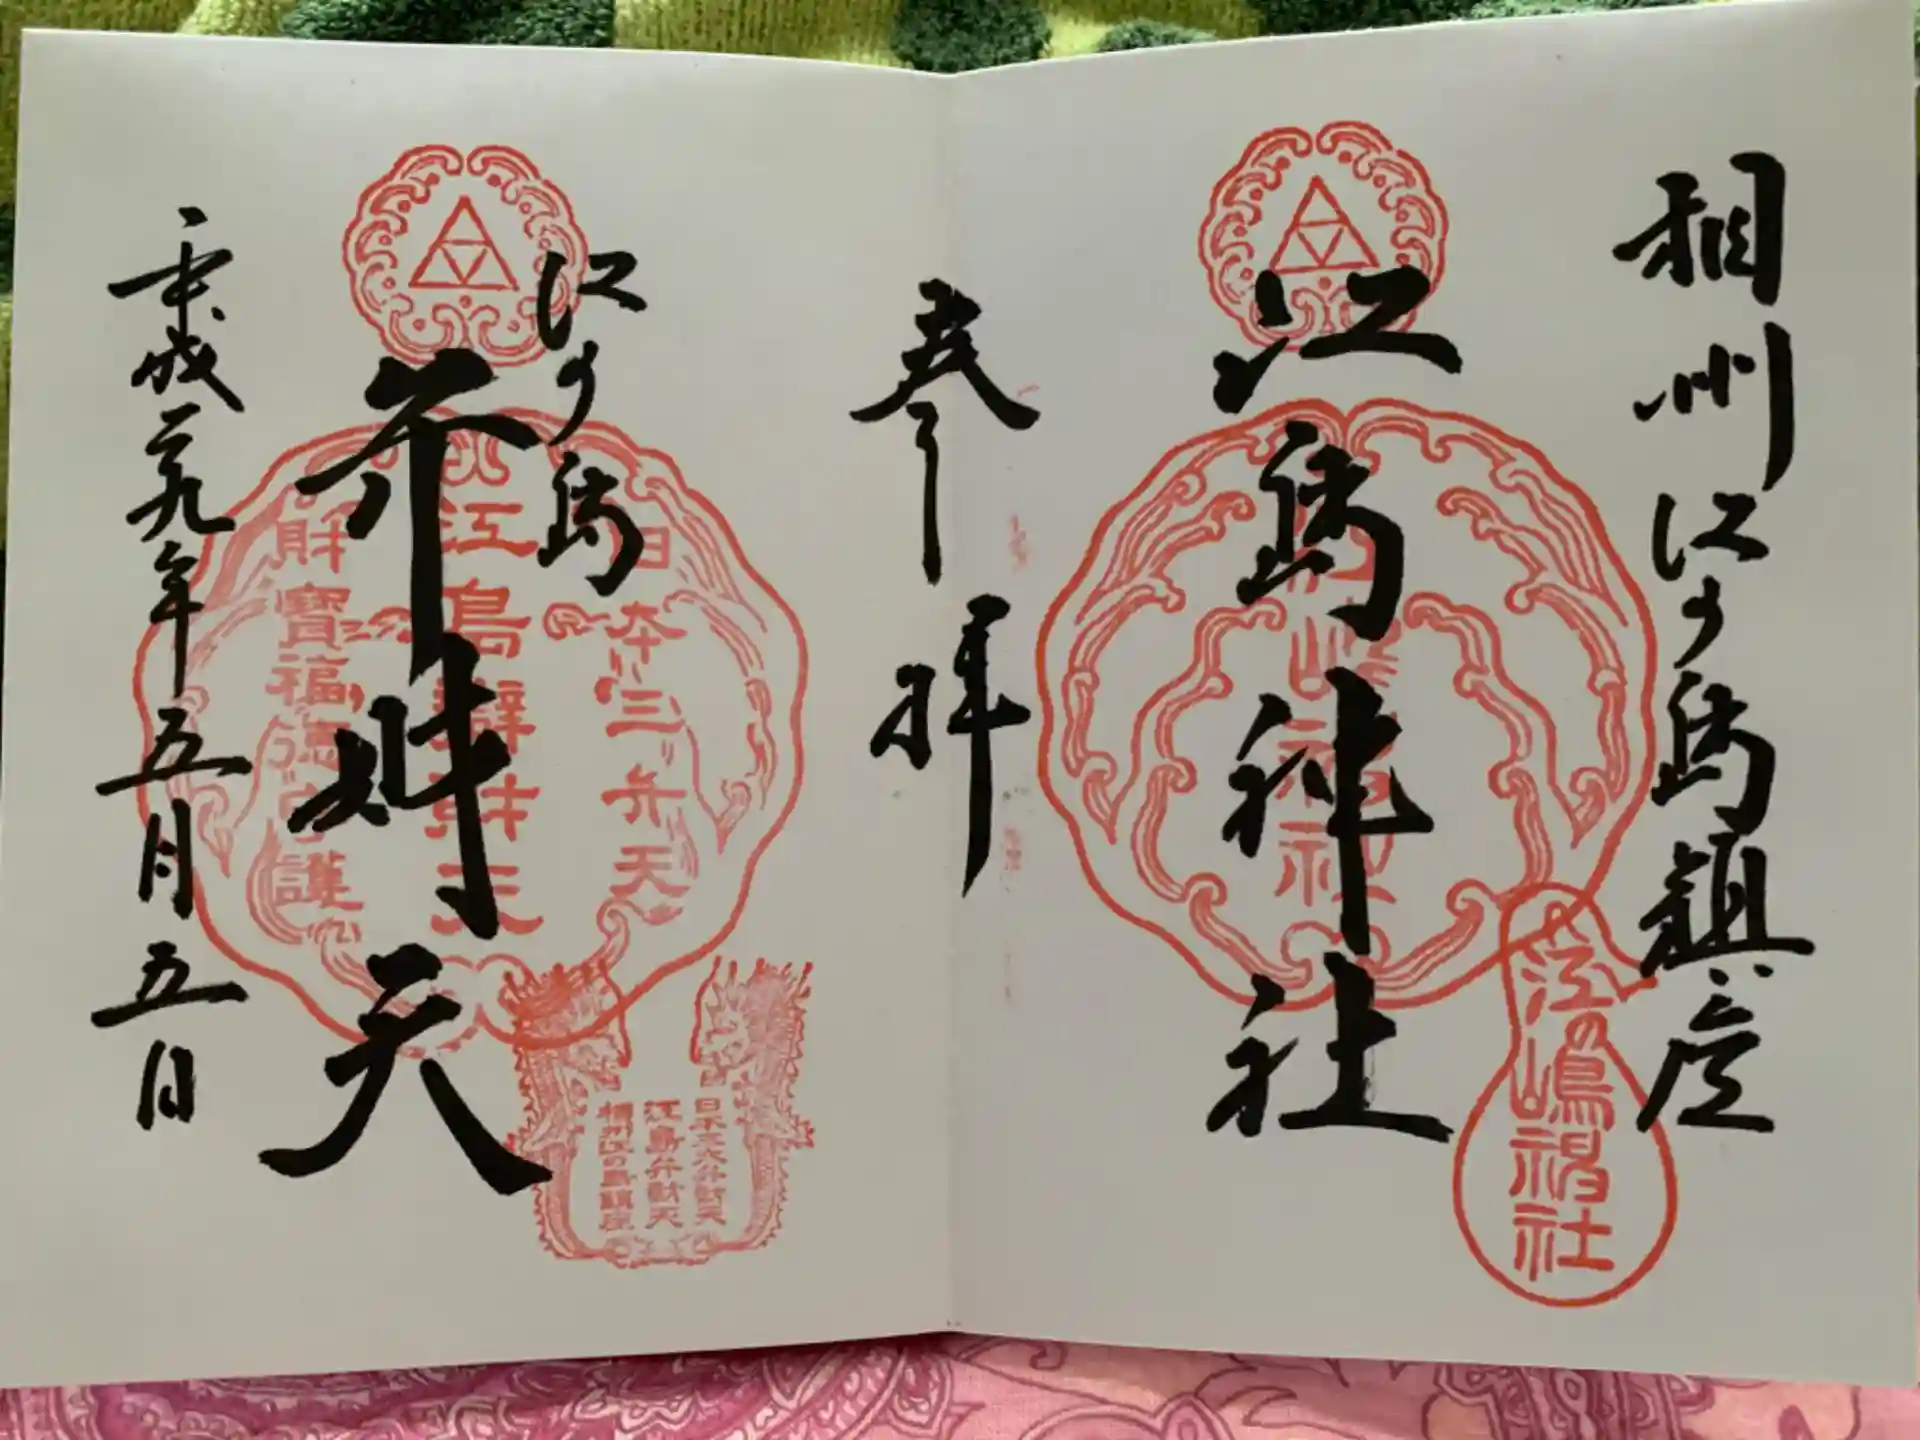 相州江の島鎮座
江島神社
江の嶋神社
参拝
江の島
弁財天
平成二九年五月五日
日本三弁天
江島辯財天
財寶福徳守護
日本三大弁財天
江島弁財天
相州江の島鎮座